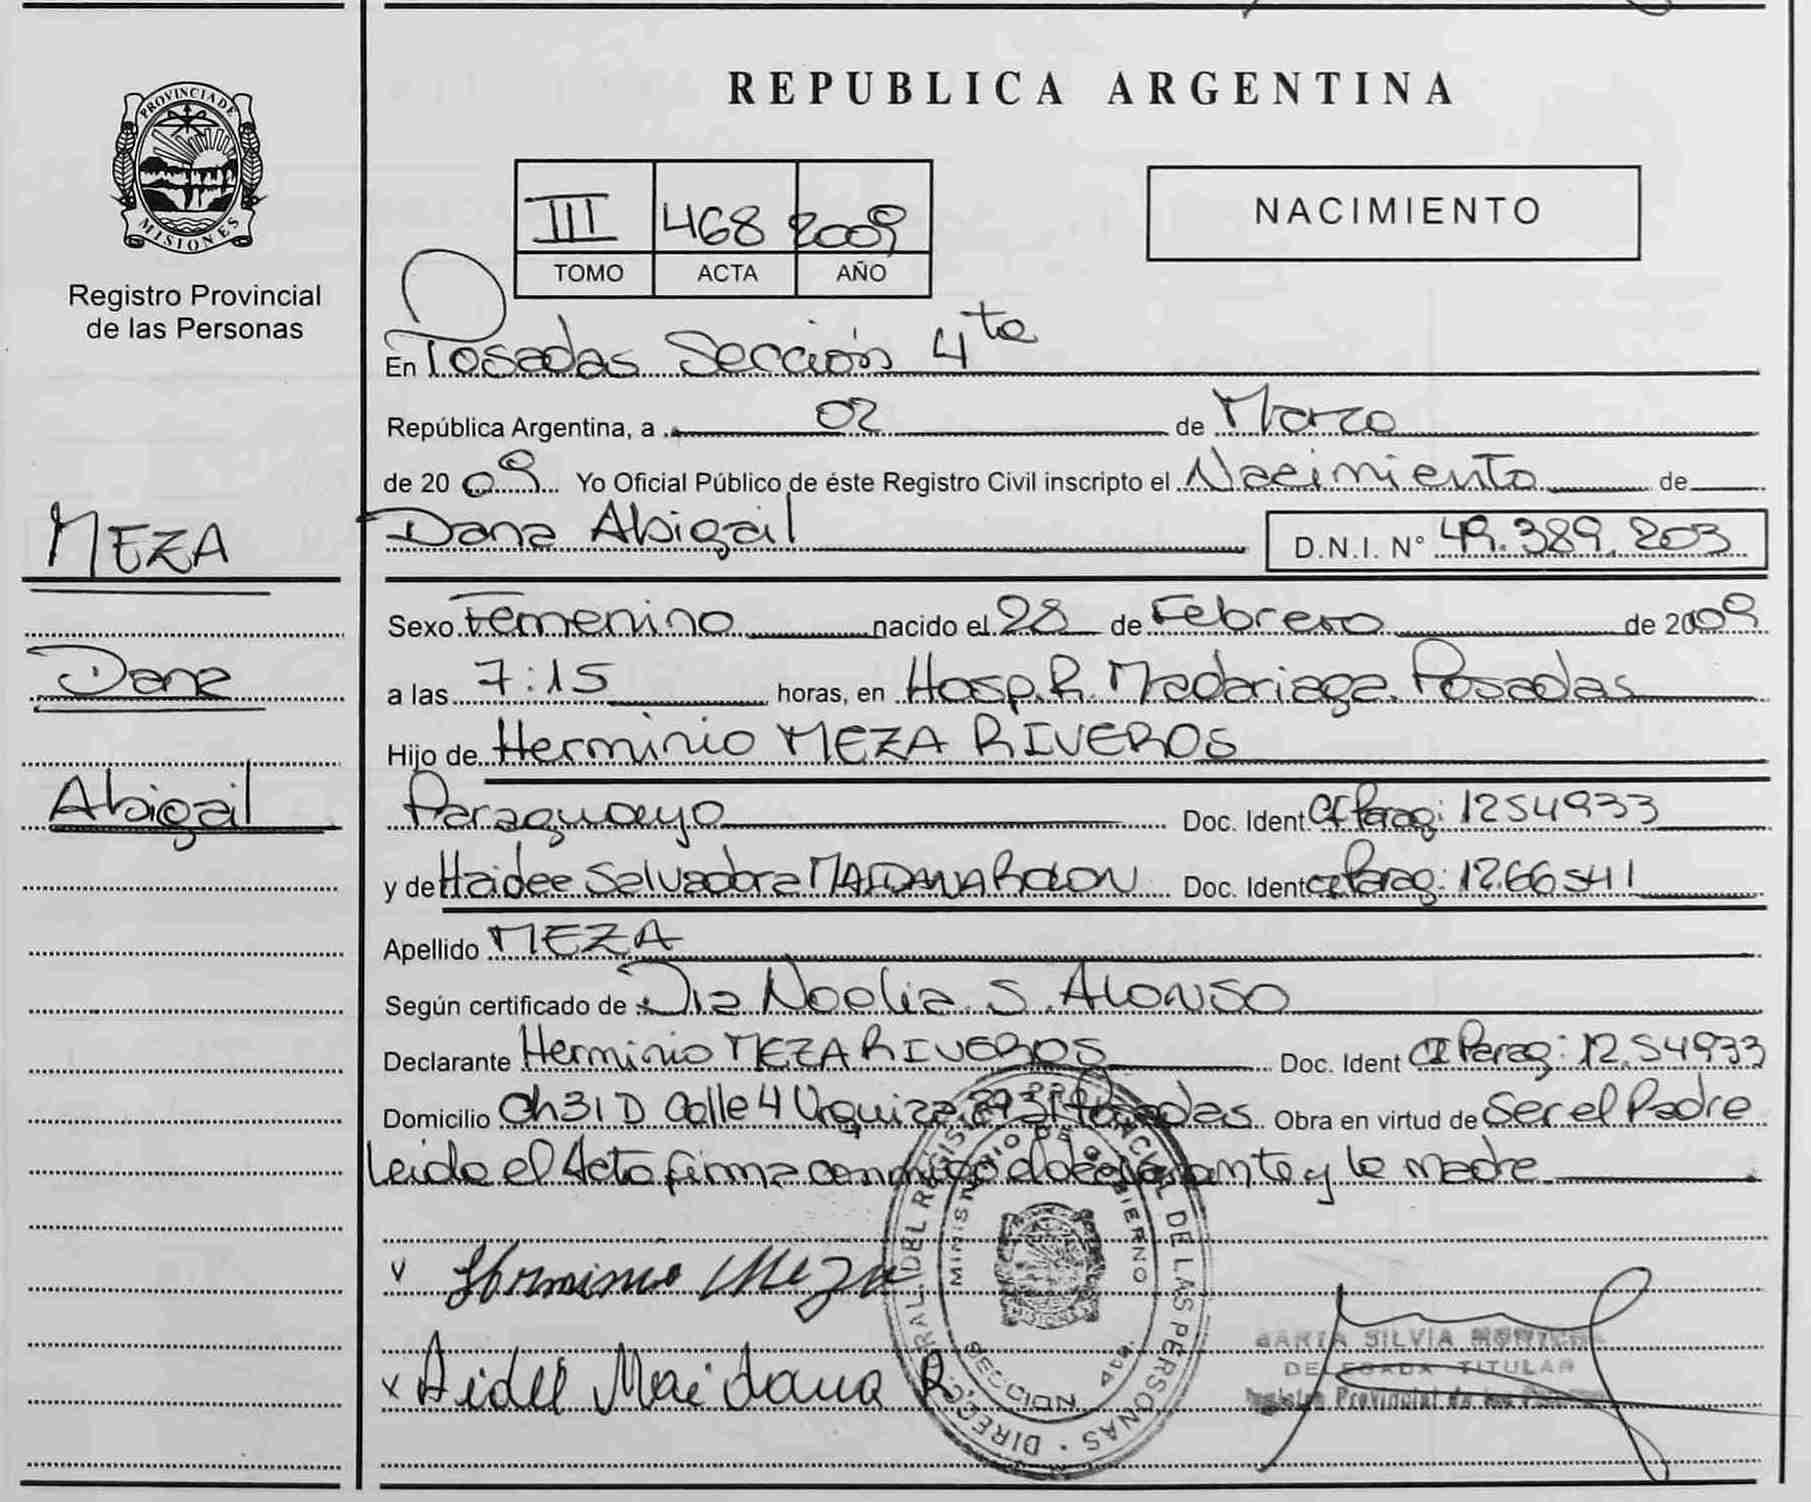 REPUBLICA ARGENTINA
PROVINCIA DE MISIONES
Registro Provincial
de las Personas
III 468 2009
TOMO ACTA AÑO
NACIMIENTO
En Posadas Sección 4ta
República Argentina, a 02 de Marzo
de 2009 Yo Oficial Público de éste Registro Civil inscripto el Nacimiento de
Dana Abigail D.N.I. N° 49.389.203
MEZA
Dana
Abigail
Sexo Femenino nacido el 28 de Febrero de 2009
a las 7:15 horas, en Hosp. R. Madariaga. Posadas
Hijo de Herminio MEZA RIVEROS
Paraguayo Doc. Ident CI Parag: 1254933
y de Haidee Salvadora MAIDANA ROLON Doc. Ident CI Parag: 1266541
Apellido MEZA
Según certificado de Dra Noelia S. ALONSO
Declarante Herminio MEZA RIVEROS Doc. Ident CI Parag: 1254933
Domicilio Ch31 D Calle 4 Urquiza Posadas Obra en virtud de Ser el Padre
Leida el Acta firma conmigo el declarante y la madre
Herminio Meza
x Aidee Maidana R.
DIRECC. GRAL. DEL REGISTRO PROVINCIAL DE LAS PERSONAS
MINISTERIO DE GOBIERNO
SECCION 4ta.
SILVIA
DELEGADA TITULAR
Registro Provincial de las Personas